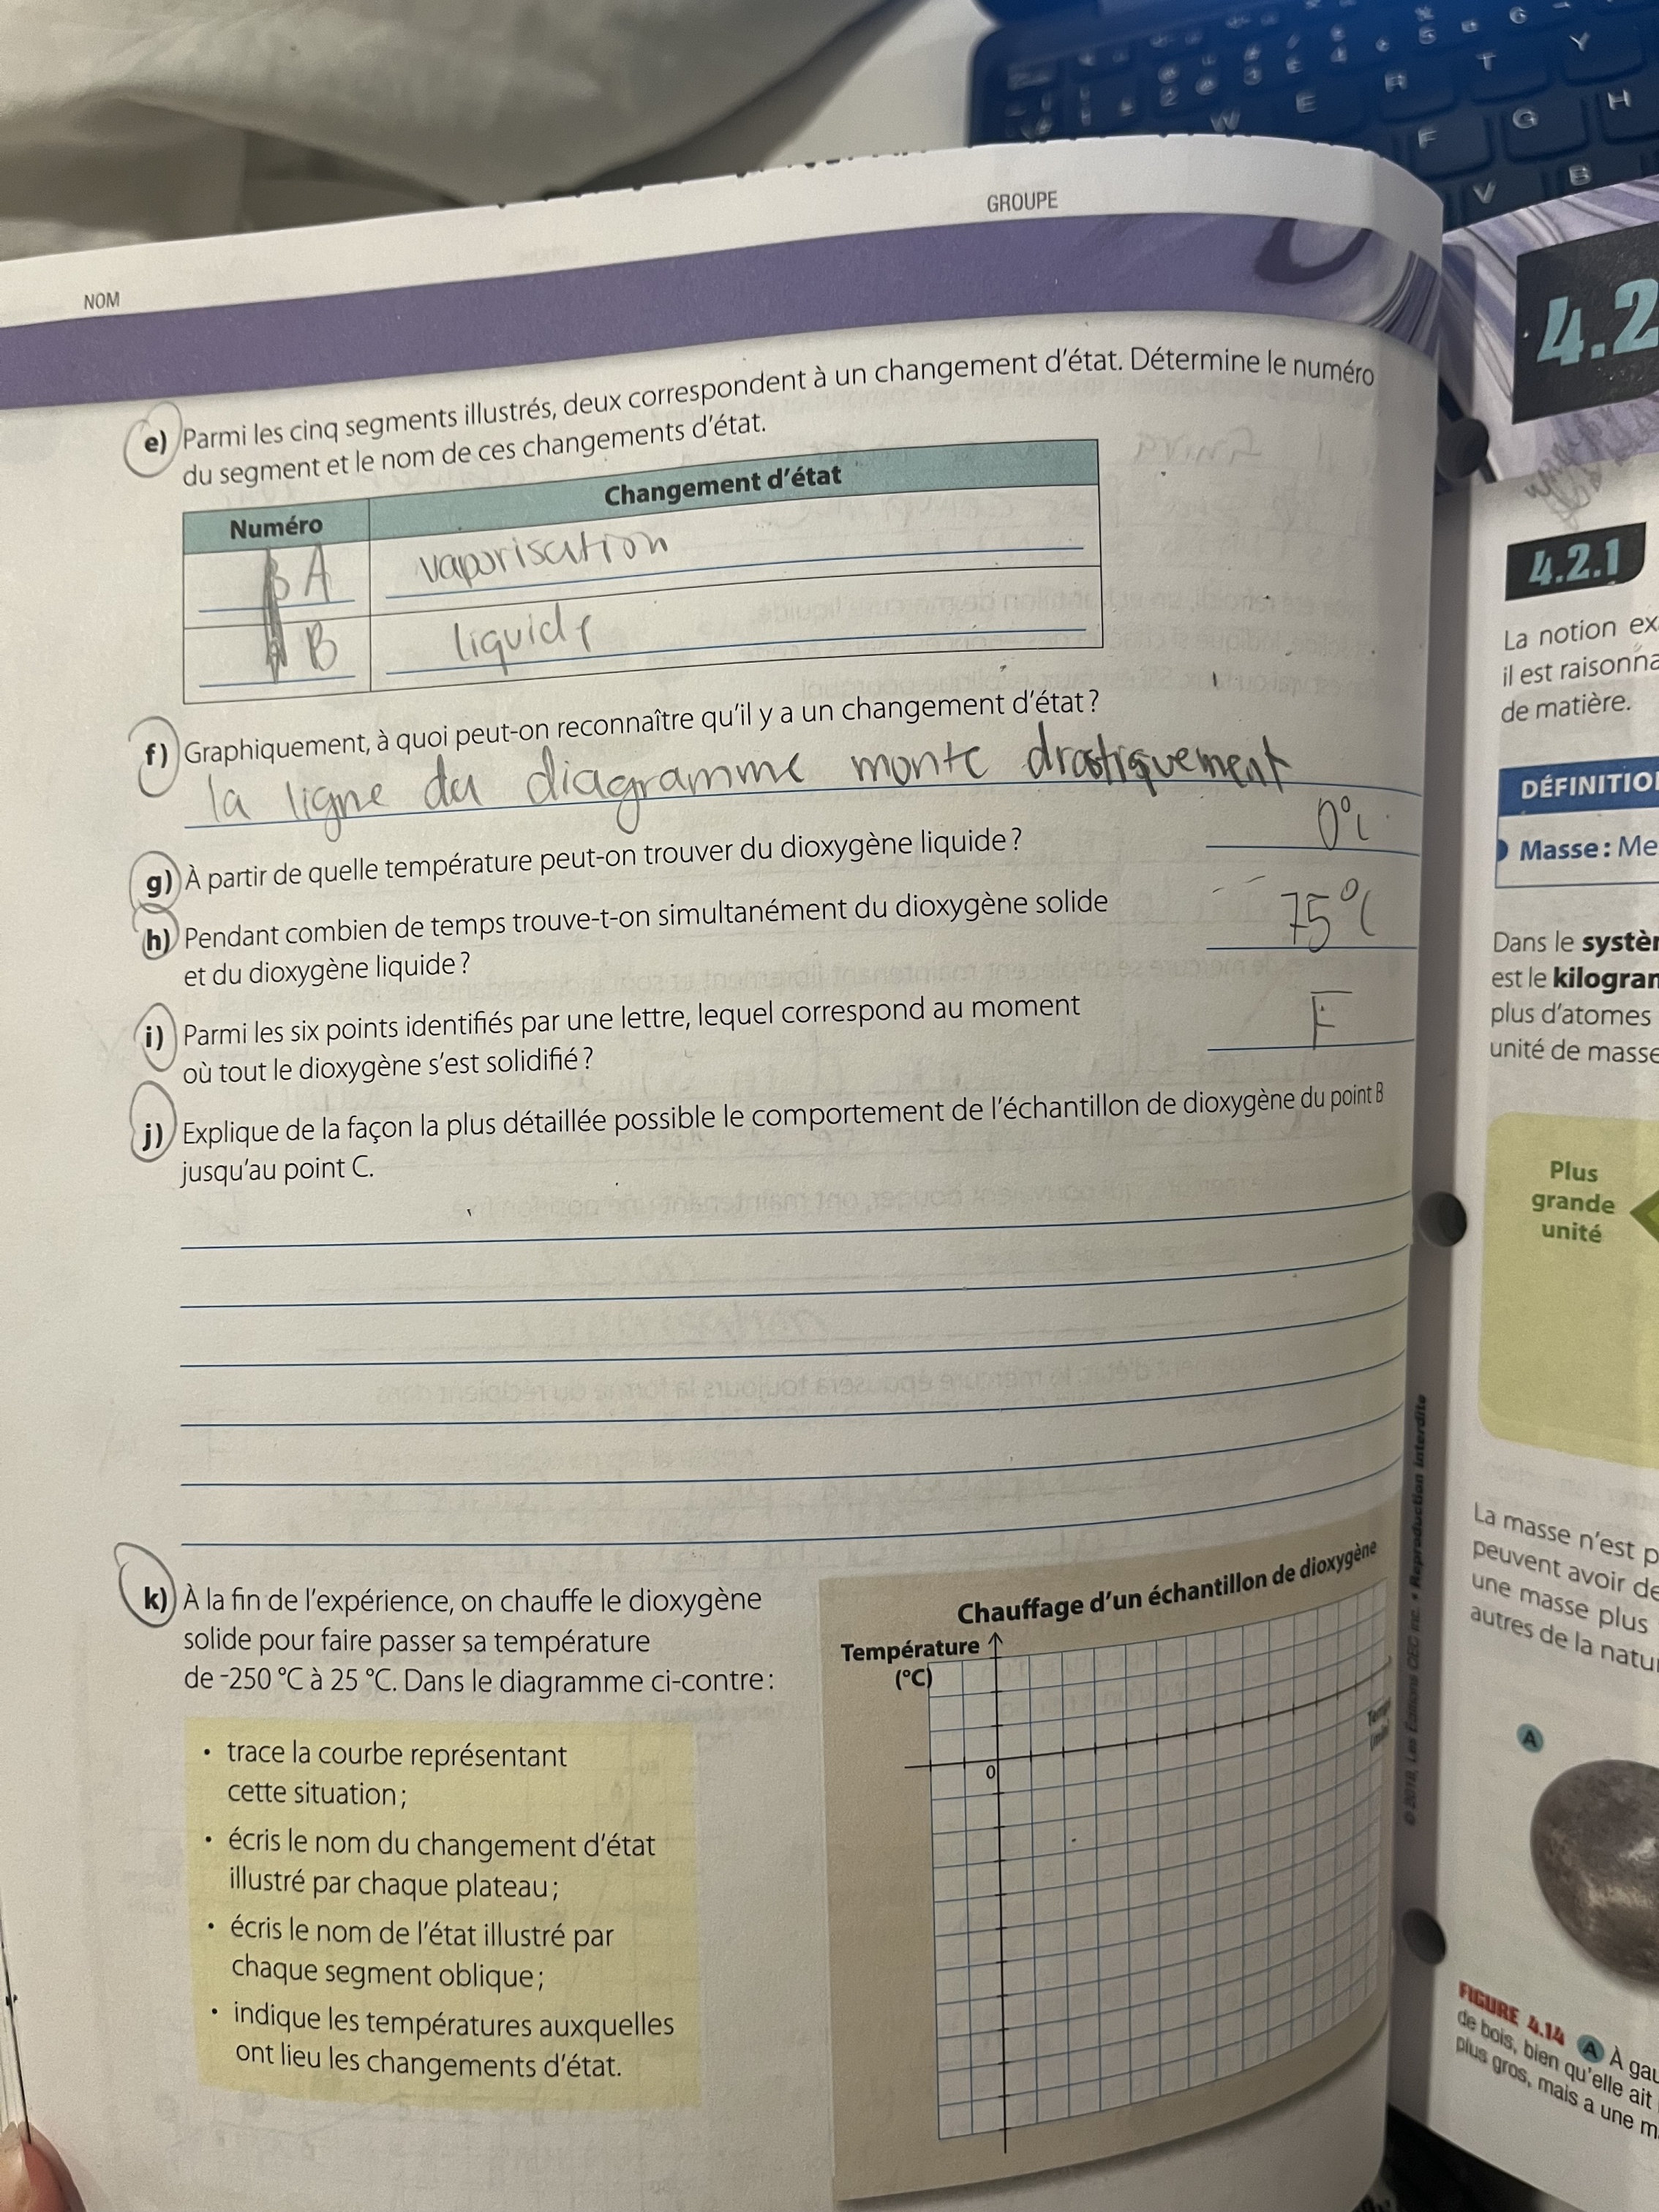 GROUPE
NOM
e) Parmi les cinq segments illustrés, deux correspondent à un changement d'état. Détermine le numéro
du segment et le nom de ces changements d'état.
Numéro Changement d'état
A vaporisation
B liquide
f) Graphiquement, à quoi peut-on reconnaître qu'il y a un changement d'état ?
la ligne du diagramme monte drastiquement
g) À partir de quelle température peut-on trouver du dioxygène liquide ? 0°C
h) Pendant combien de temps trouve-t-on simultanément du dioxygène solide
et du dioxygène liquide ? 75°C
i) Parmi les six points identifiés par une lettre, lequel correspond au moment
où tout le dioxygène s'est solidifié ? F
j) Explique de la façon la plus détaillée possible le comportement de l'échantillon de dioxygène du point B
jusqu'au point C.
k) À la fin de l'expérience, on chauffe le dioxygène
solide pour faire passer sa température
de -250 °C à 25 °C. Dans le diagramme ci-contre :
• trace la courbe représentant
cette situation ;
• écris le nom du changement d'état
illustré par chaque plateau ;
• écris le nom de l'état illustré par
chaque segment oblique ;
• indique les températures auxquelles
ont lieu les changements d'état.
Chauffage d'un échantillon de dioxygène
Température
(°C)
0
© 2018, Les Éditions CEC inc. • Reproduction interdite
4.2
4.2.1
La notion ex
il est raisonna
de matière.
DÉFINITIO
Masse : Me
Dans le systèm
est le kilogram
plus d'atomes
unité de masse
Plus
grande
unité
La masse n'est p
peuvent avoir de
une masse plus
autres de la natu
A
FIGURE 4.14 A À gau
de bois, bien qu'elle ait
plus gros, mais a une m
W E R T Y
F G H
V B